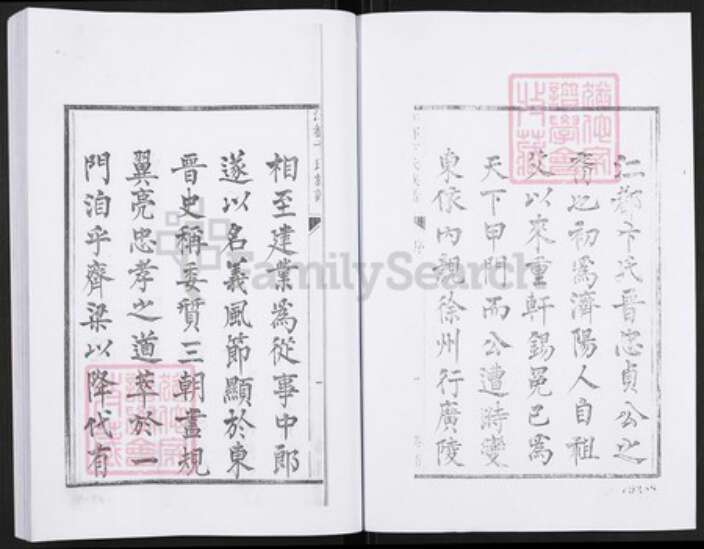 江都卞氏晉忠貞公之
裔也初為濟陽人自祖
父以來重軒錫冕已為
天下甲門而公遭時變
東依內親徐州行廣陵
相至建業為從事中郎
遂以名義風節顯於東
晉史稱委質三朝盡規
翼亮忠孝之道萃於一
門洎乎齊梁以降代有
FamilySearch